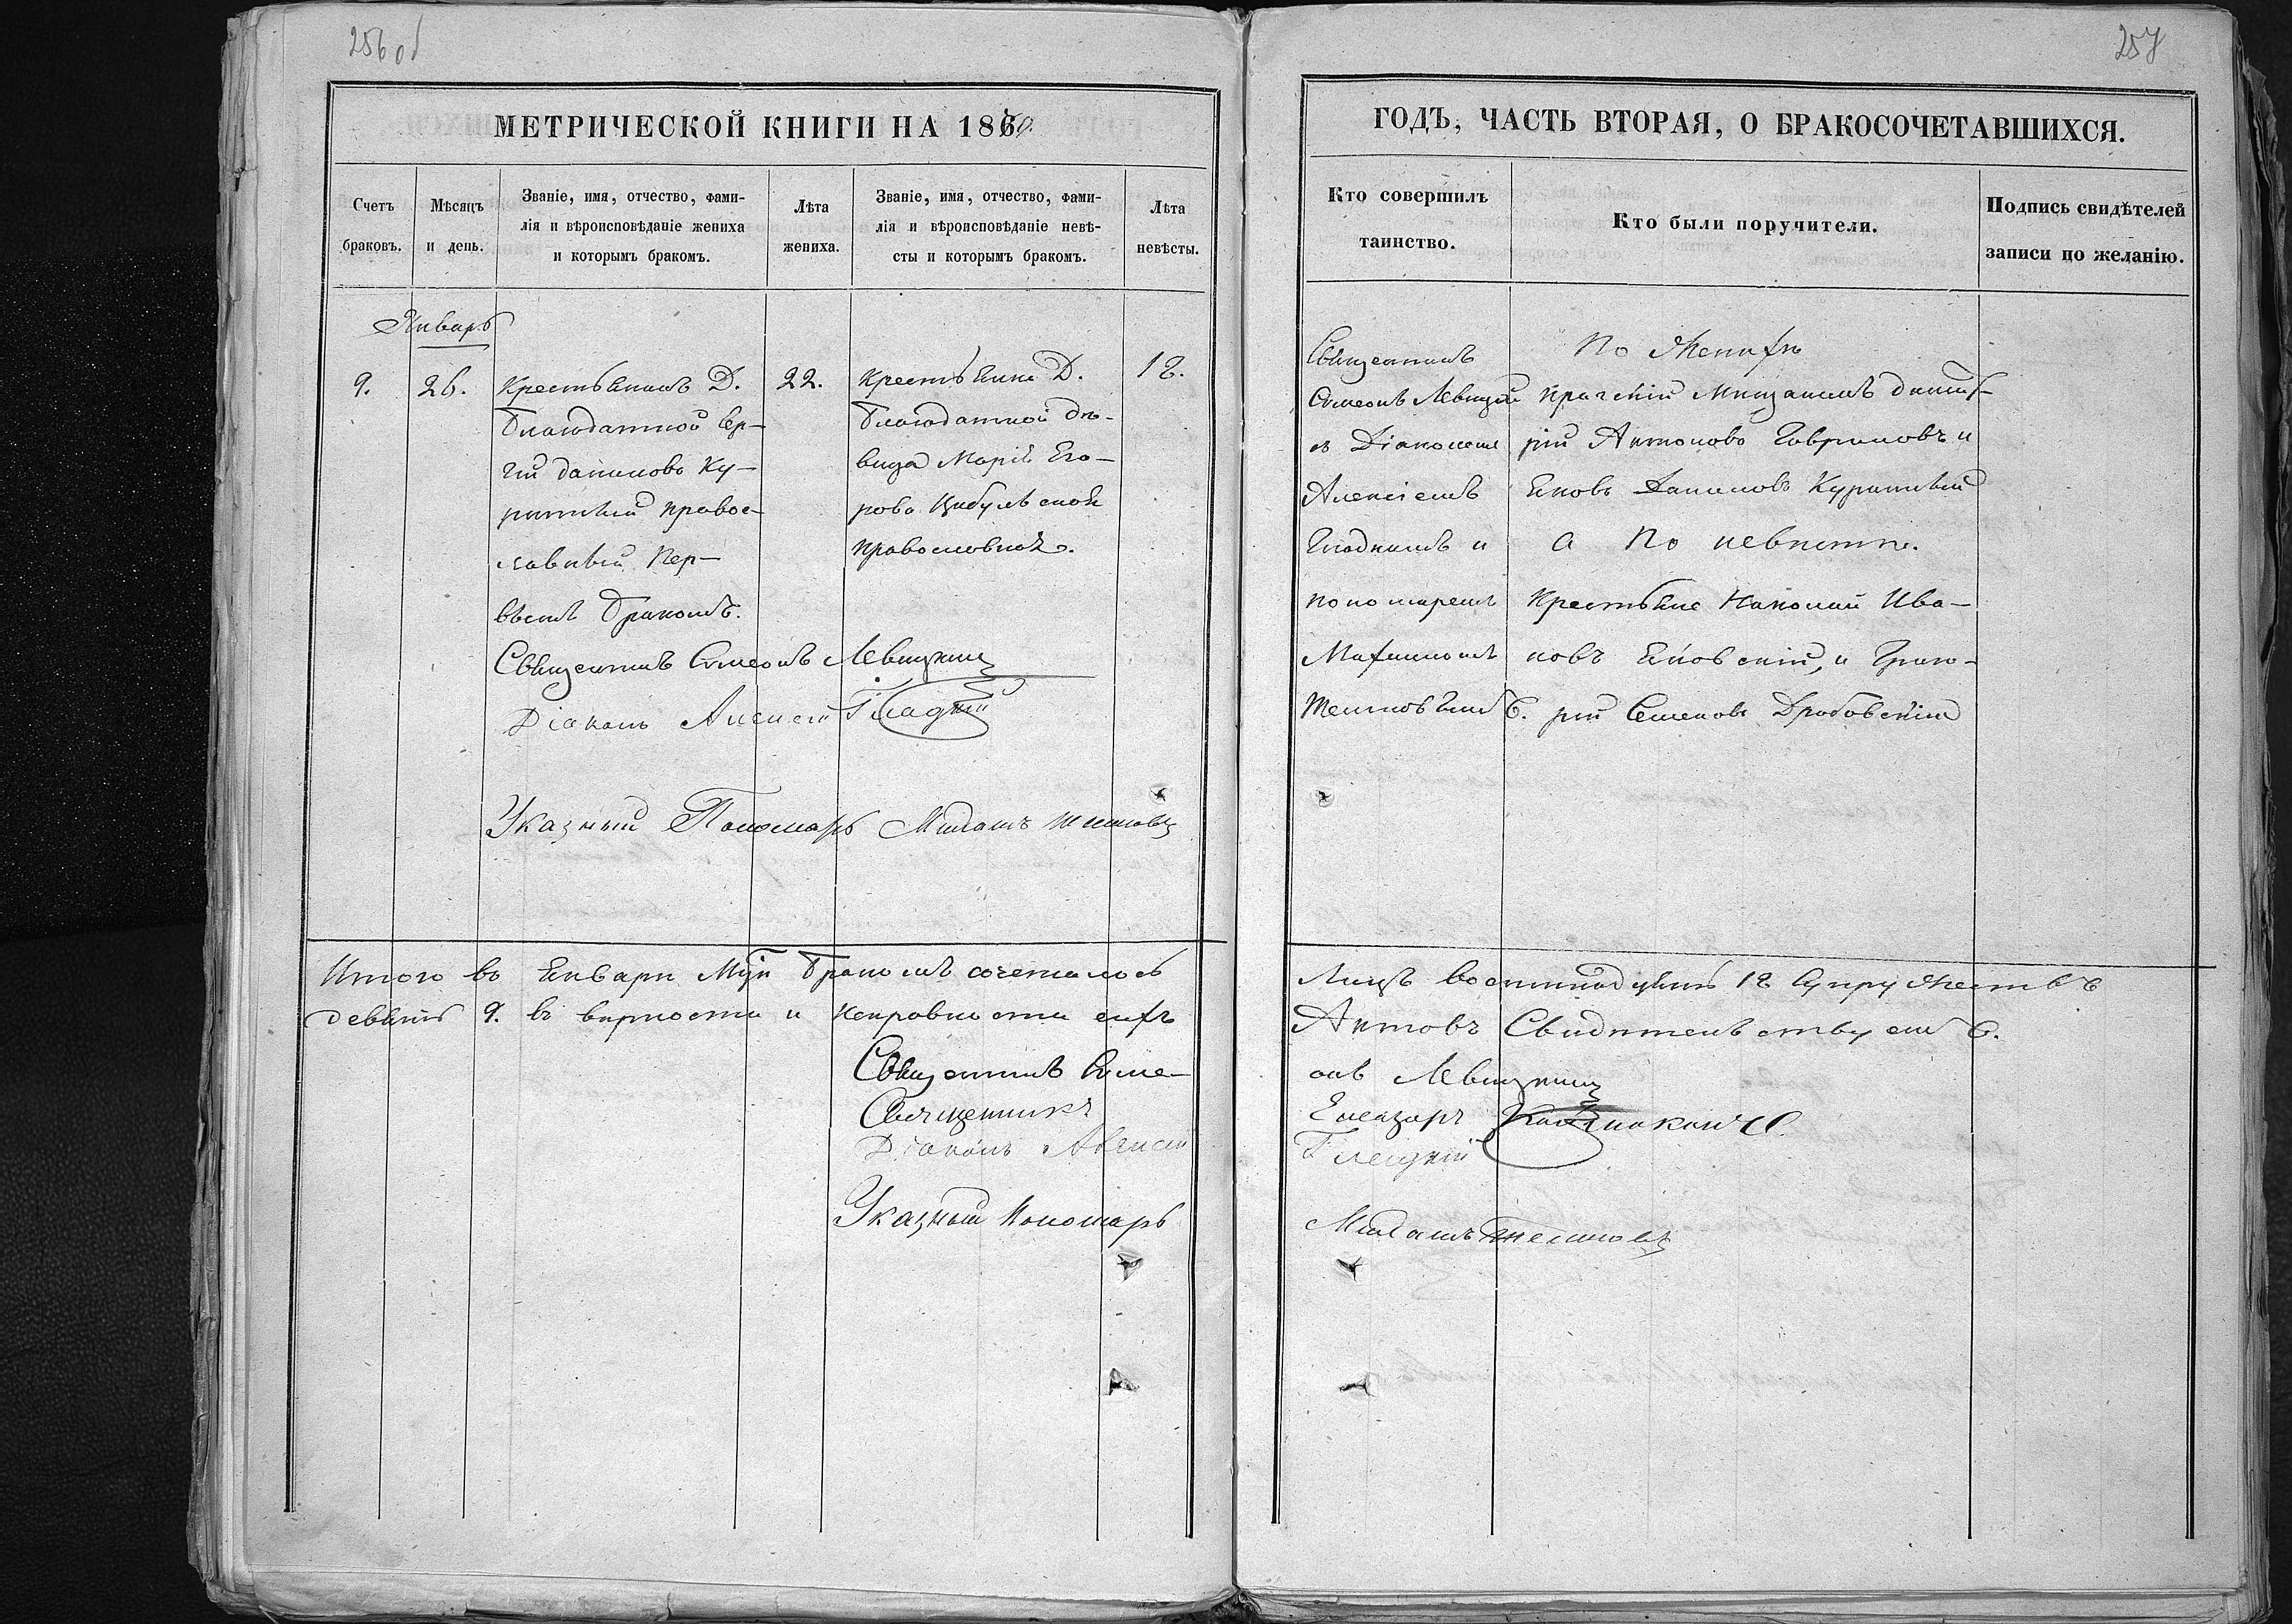 256 об
МЕТРИЧЕСКОЙ КНИГИ НА 1870.
Счетъ браковъ.
Мѣсяцъ и день.
Званіе, имя, отчество, фами-
лія и вѣроисповѣданіе жениха
и которымъ бракомъ.
Лѣта жениха.
Званіе, имя, отчество, фами-
лія и вѣроисповѣданіе невѣ-
сты и которымъ бракомъ.
Лѣта невѣсты.
Январь
9.
26.
Крестьянинъ Д.
Благодатной Сер-
гій Даниловъ Ку-
ритный правос-
лавный пер-
вымъ бракомъ.
22.
Крестьянка Д.
Благодатной дѣ-
вица Марія Его-
рова Цибульская
православная.
18.
Священникъ Симеонъ Левицкій
Діаконъ Алексій Гладкій
Указный Пономарь
Итого въ Январѣ Мцѣ бракомъ сочеталось
девять 9. въ вѣрности и исправности сихъ
Священникъ Симе-
Священникъ
Діаконъ Алексій
Указный Пономарь
257
ГОДЪ, ЧАСТЬ ВТОРАЯ, О БРАКОСОЧЕТАВШИХСЯ.
Кто совершилъ
таинство.
Кто были поручители.
Подпись свидѣтелей
записи по желанію.
Священникъ
Симеонъ Левицкій
съ Діакономъ
Алексіемъ
Гладкимъ и
пономаремъ
По Женихѣ
Мищанинъ Димит-
рій Антоновъ Гавриловъ и
Яковъ Даниловъ Куритный
а По невѣстѣ.
Крестьяне Николай Ива-
новъ Яновскій, и Григо-
рій Семеновъ Дробовскій
Лицъ восемнадцять 18 супружествъ
Актовъ Свидѣтельствуемъ.
онъ Левицкій
Елеазаръ
Гладкій